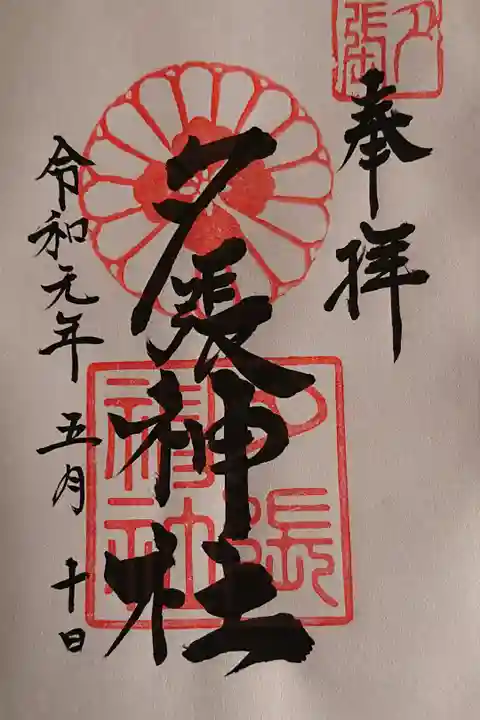 夕張
奉拝
夕張神社
夕張
神社
令和元年 五月 十日